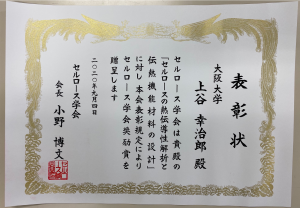 表彰状
大阪大学
上谷 幸治郎 殿
セルロース学会は貴殿の
「セルロースの熱伝導性解析と
伝熱機能材料の設計」
に対し本会表彰規定により
セルロース学会奨励賞を
贈呈します
二〇二〇年九月四日
セルロース学会
会長 小野 博文